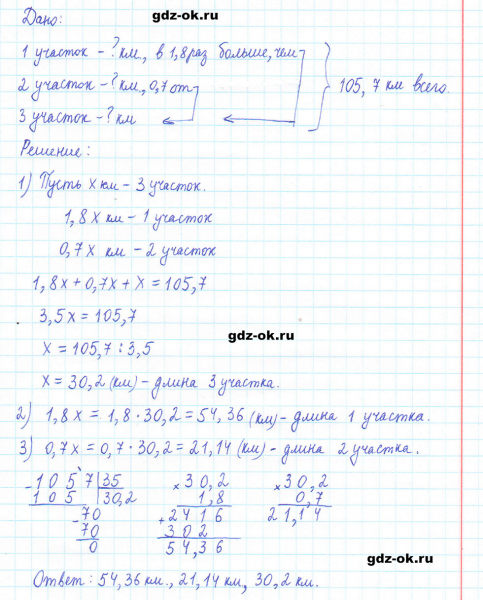 gdz-ok.ru
Дано:
1 участок - ? км., в 1,8 раз больше, чем
2 участок - ? км., 0,7 от
105,7 км всего.
3 участок - ? км
Решение:
1) Пусть x км - 3 участок.
1,8x км - 1 участок
0,7x км - 2 участок
1,8x + 0,7x + x = 105,7
3,5x = 105,7
gdz-ok.ru
x = 105,7 : 3,5
x = 30,2 (км) - длина 3 участка.
2) 1,8x = 1,8 · 30,2 = 54,36 (км) - длина 1 участка.
3) 0,7x = 0,7 · 30,2 = 21,14 (км) - длина 2 участка.
- 105'7 | 35 × 30,2 × 30,2
105 | 30,2 1,8 0,7
- 70 + 2416 21,14
70 302
0 54,36
gdz-ok.ru
Ответ: 54,36 км., 21,14 км., 30,2 км.